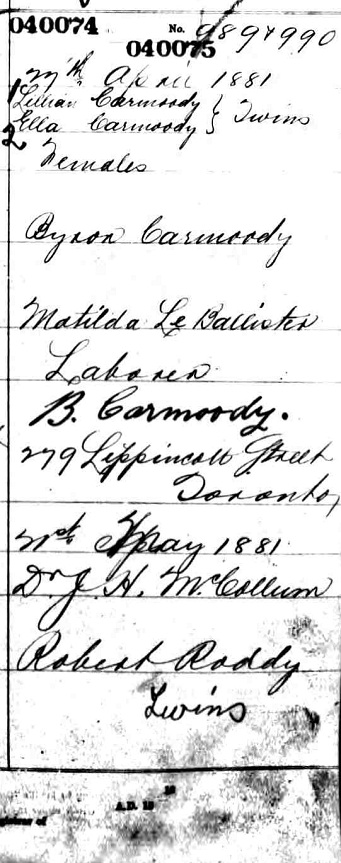 040074
No. 989 & 990
040075
April 1881
1 Lillian Carmoody } Twins
2 Ella Carmoody
Females
Byron Carmoody
Matilda Le Ballister
Laborer
B. Carmoody.
279 Lippincott Street
Toronto,
May 1881
Dr J. H. McCollum
Robert Roddy
Twins
A.D. 18